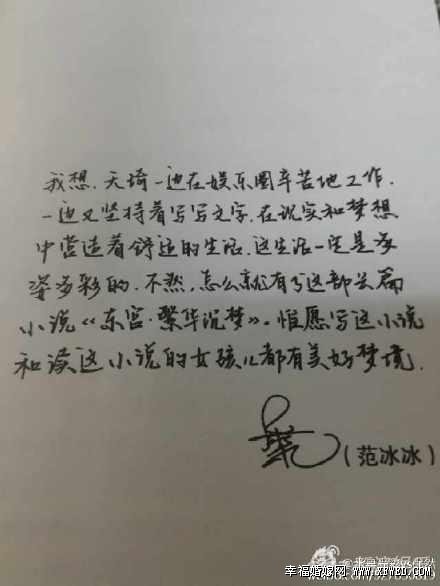 我想，天琦一边在娱乐圈辛苦地工作，
一边又坚持着写写文字，在现实和梦想
中营造着舒适的生活。这生活一定是多
姿多彩的，不然，怎么就有了这部长篇
小说《东宫·繁华沉梦》。惟愿写这小说
和读这小说的女孩儿都有美好梦境。
(范冰冰)